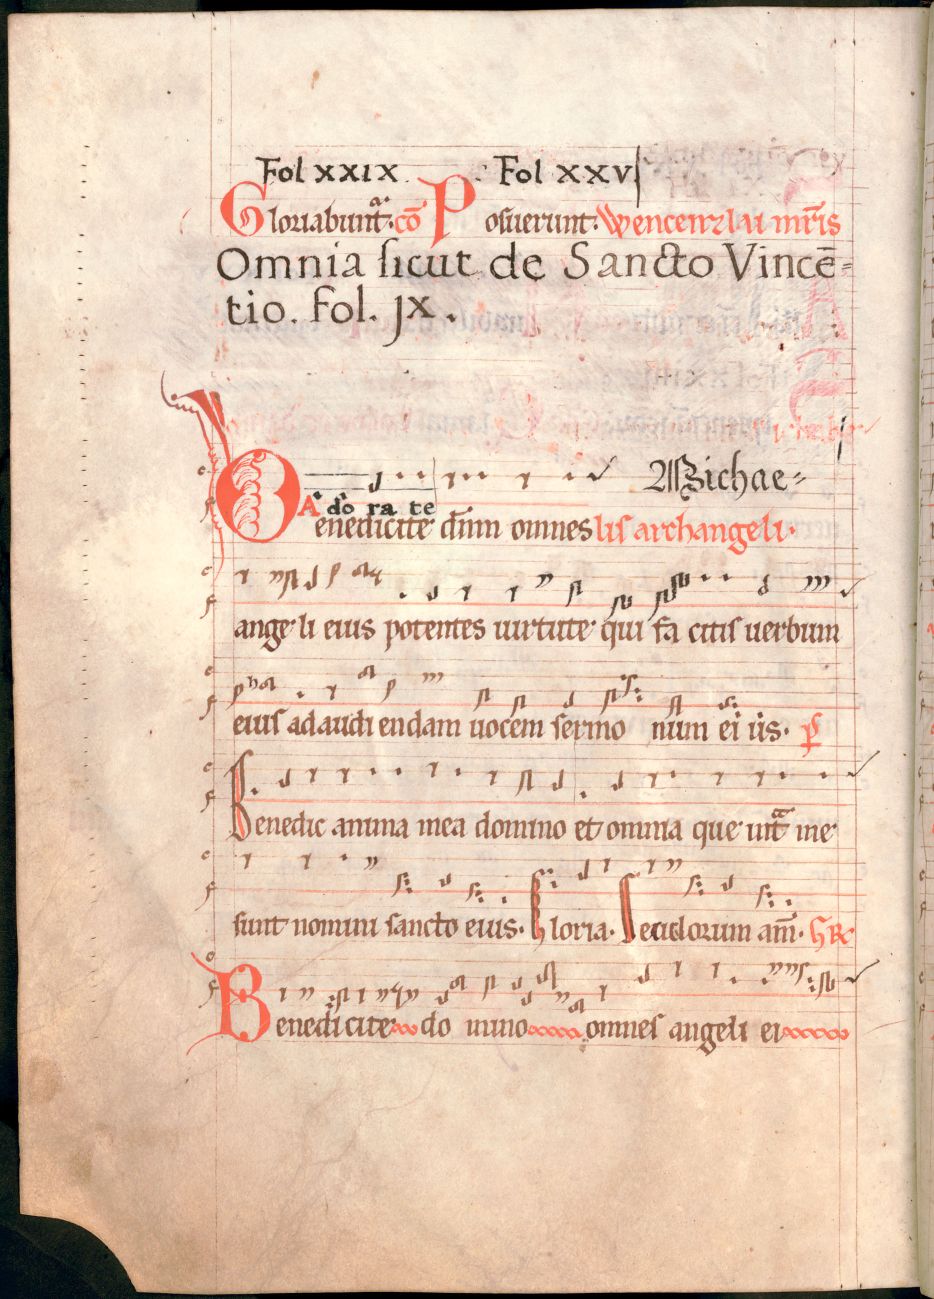 Fol xxix. Fol xxv
Gloriabunt̃. co̅ Posuerunt. Wenceczlai mr̃is
Omnia sicut de Sancto Vince̅=
tio. Fol. jx.
Michae=
A do ra te
Benedicite dñm omnes lis archangeli.
ange li eius potentes uirtute qui fa citis uerbum
eius ad audi endam uocem sermo num ei us. P
Benedic anima mea domino et omnia que intᵃ me
sunt nomini sancto eius. Gloria. Seculorum am̅. GR
Benedicite do mino omnes angeli ei